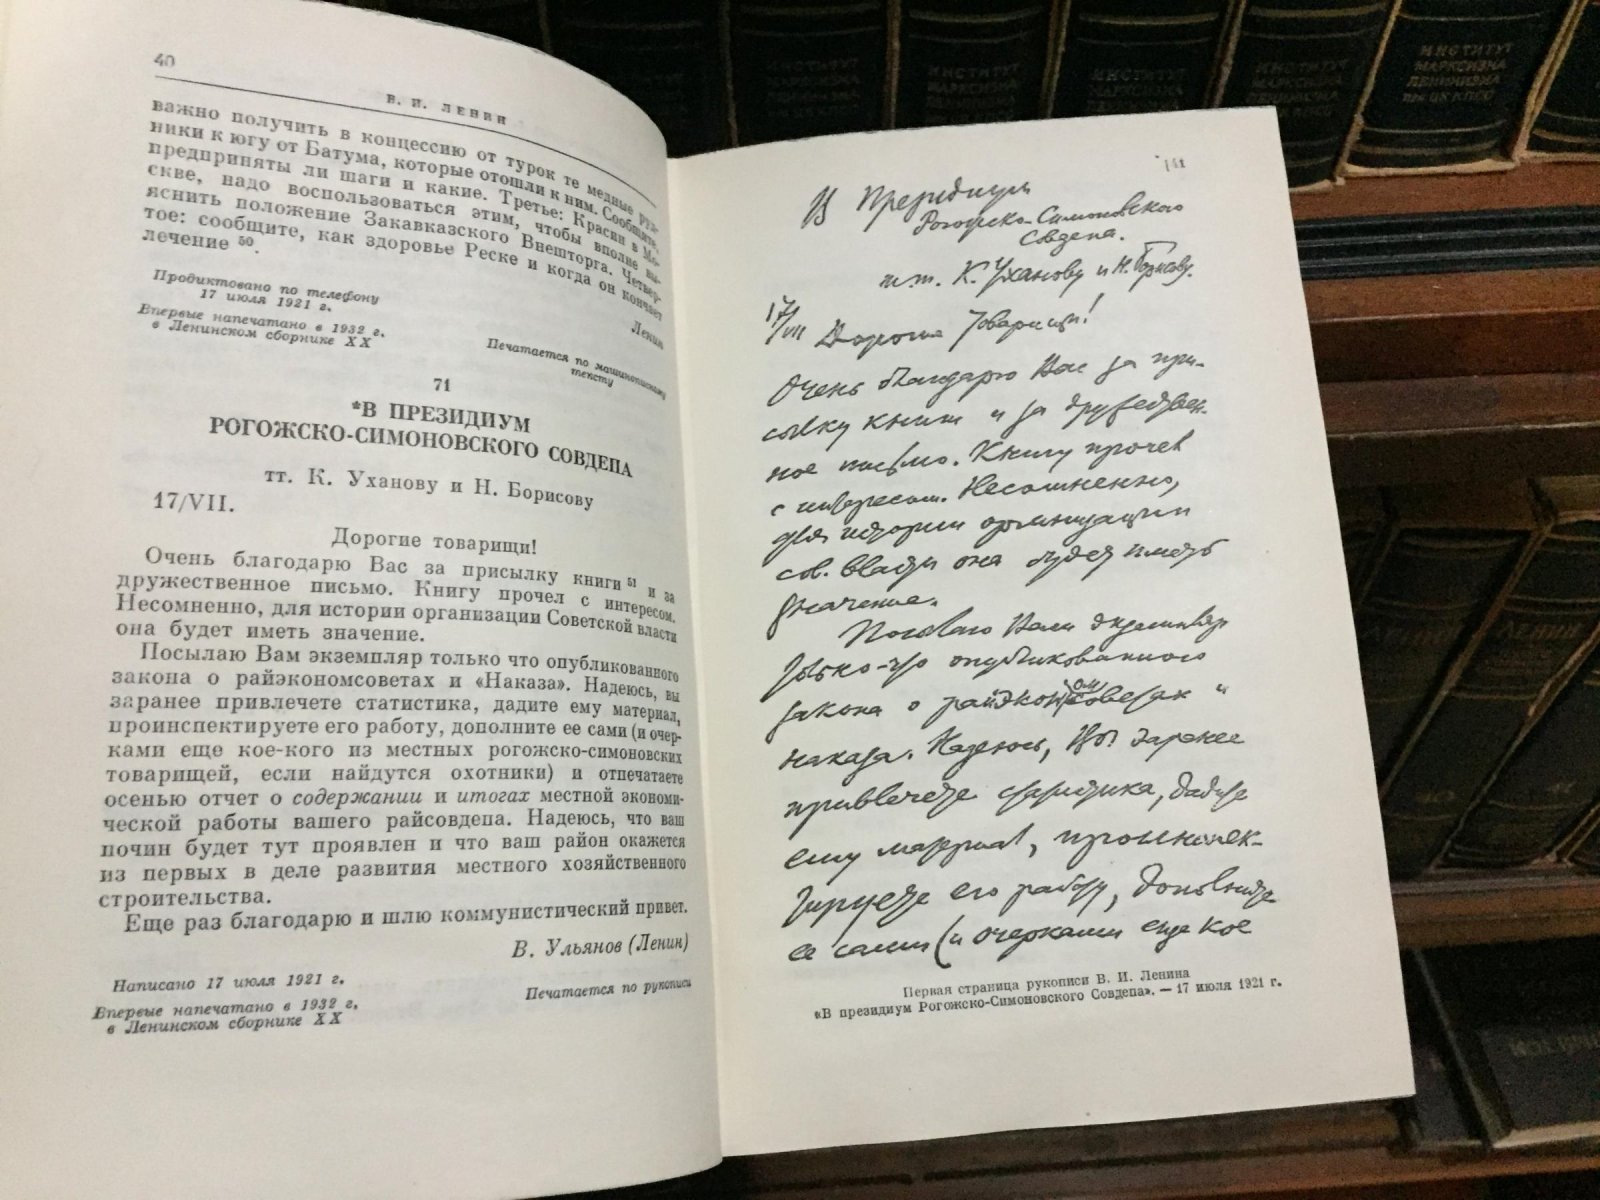 40
В. И. ЛЕНИН
важно получить в концессию от турок те медные руд-
ники к югу от Батума, которые отошли к ним. Сообщите,
предприняты ли шаги и какие. Третье: Красин в Мо-
скве, надо воспользоваться этим, чтобы вполне вы-
яснить положение Закавказского Внешторга. Четвер-
тое: сообщите, как здоровье Реске и когда он кончает
лечение 50.
Ленин
Продиктовано по телефону
17 июля 1921 г.
Впервые напечатано в 1932 г.
в Ленинском сборнике XX
Печатается по машинописному
тексту
71
*В ПРЕЗИДИУМ
РОГОЖСКО-СИМОНОВСКОГО СОВДЕПА
тт. К. Уханову и Н. Борисову
17/VII.
Дорогие товарищи!
Очень благодарю Вас за присылку книги 51 и за
дружественное письмо. Книгу прочел с интересом.
Несомненно, для истории организации Советской власти
она будет иметь значение.
Посылаю Вам экземпляр только что опубликованного
закона о райэкономсоветах и «Наказа». Надеюсь, вы
заранее привлечете статистика, дадите ему материал,
проинспектируете его работу, дополните ее сами (и очер-
ками еще кое-кого из местных рогожско-симоновских
товарищей, если найдутся охотники) и отпечатаете
осенью отчет о содержании и итогах местной экономи-
ческой работы вашего райсовдепа. Надеюсь, что ваш
почин будет тут проявлен и что ваш район окажется
из первых в деле развития местного хозяйственного
строительства.
Еще раз благодарю и шлю коммунистический привет.
В. Ульянов (Ленин)
Написано 17 июля 1921 г.
Впервые напечатано в 1932 г.
в Ленинском сборнике XX
Печатается по рукописи
В Президиум
Рогожско-Симоновского
Совдепа.
тт. К. Уханову и Н. Борисову.
17/VII Дорогие товарищи!
Очень благодарю Вас за при-
сылку книги и за дружествен-
ное письмо. Книгу прочел
с интересом. Несомненно,
для истории организации
сов. власти она будет иметь
значение.
Посылаю Вам экземпляр
только-что опубликованного
закона о райэкономсоветах и
наказа. Надеюсь, Вы заранее
привлечете статистика, дадите
ему материал, проинспек-
тируете его работу, дополните
ее сами (и очерками еще кое
Первая страница рукописи В. И. Ленина
«В президиум Рогожско-Симоновского Совдепа». — 17 июля 1921 г.
ИНСТИТУТ
МАРКСИЗМА
ЛЕНИНИЗМА
ПРИ ЦК КПСС